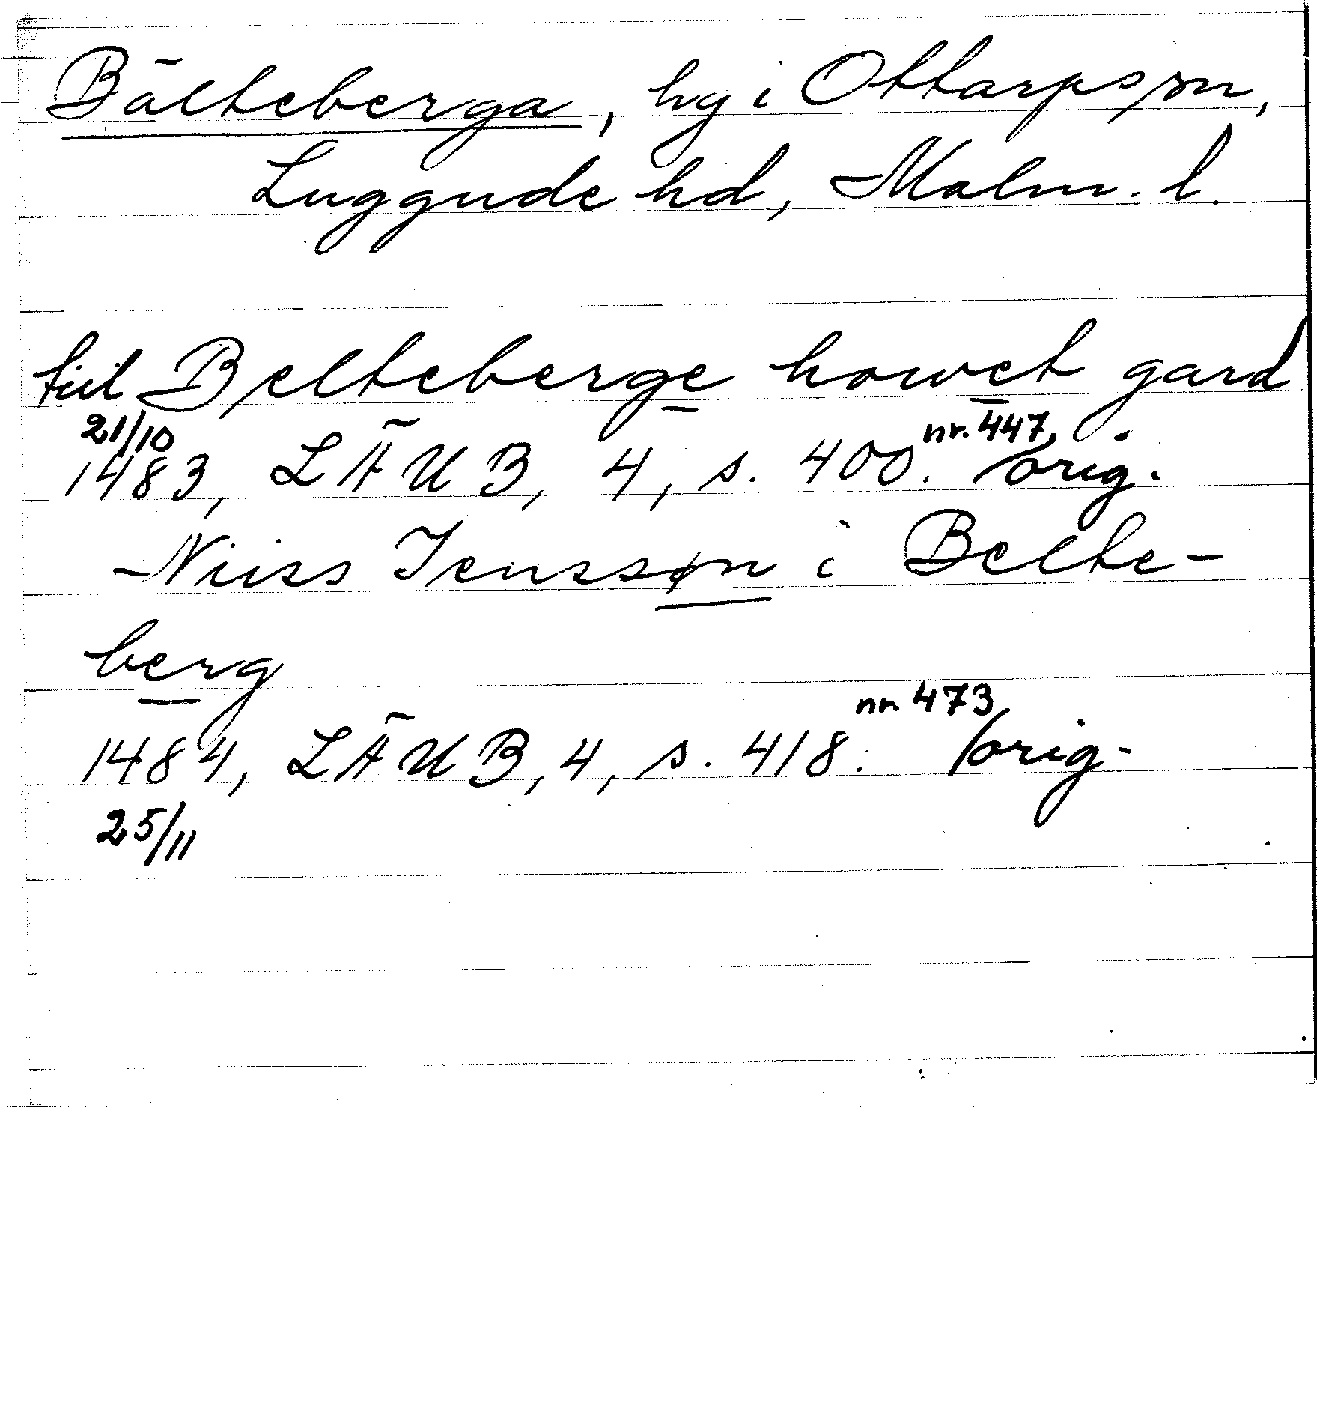 Bälteberga, by i Ottarps sn,
Luggude hd, Malm. l.
tiil Belteberge howet gard
21/10 nr. 447
1483, LÄUB, 4, s. 400. /orig.
Niiss Jenssøn i Belte-
berg
nr. 473
1484, LÄUB, 4, s. 418. /orig.
25/11